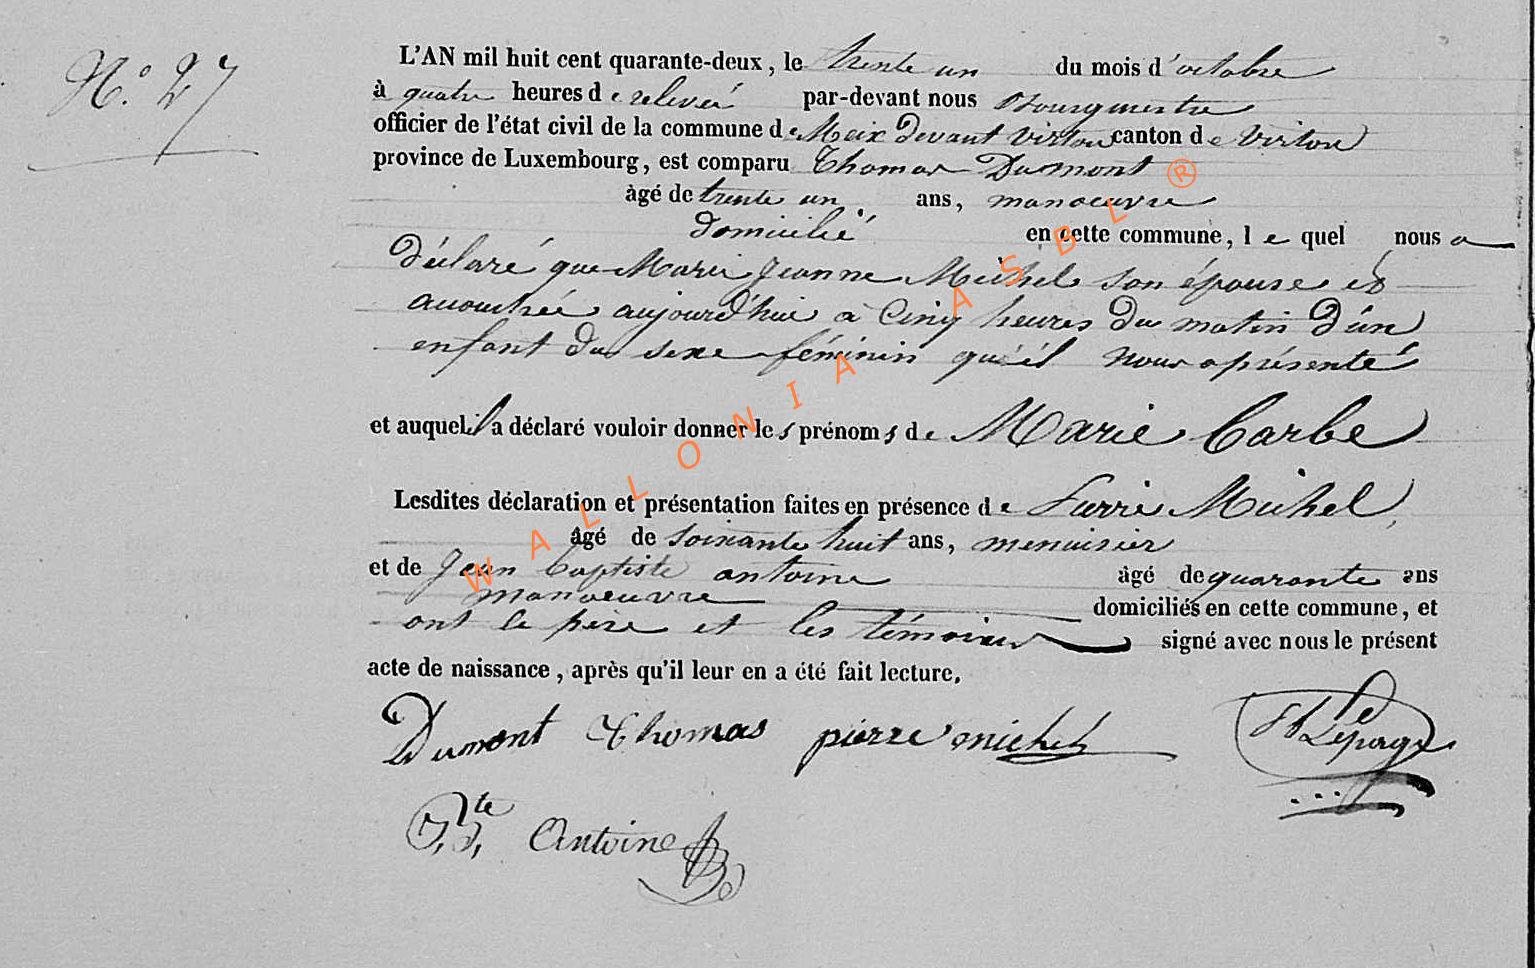 N.° 27
L'AN mil huit cent quarante-deux, le trente un du mois d'octobre
à quatre heures de relevée par-devant nous Bourgmestre
officier de l'état civil de la commune de Meix devant virton canton de virton
province de Luxembourg, est comparu Thomas Dumont
àgé de trente un ans, manoeuvre
domicilié en cette commune, lequel nous a
déclaré que Marie Jeanne Michel son épouse est
accouchée aujourd'hui à Cinq heures du matin d'un
enfant du sexe féminin qu'il nous a présenté
et auquel il a déclaré vouloir donner les prénoms de Marie Barbe
Lesdites déclaration et présentation faites en présence de Pierre Michel
âgé de soixante huit ans, menuisier
et de Jean baptiste antoine àgé de quarante ans
manoeuvre domiciliés en cette commune, et
ont le père et les témoins signé avec nous le présent
acte de naissance, après qu'il leur en a été fait lecture.
Dumont Thomas pierre michel Lepage
J. Bte Antoine
WALLONIA ASBL ®